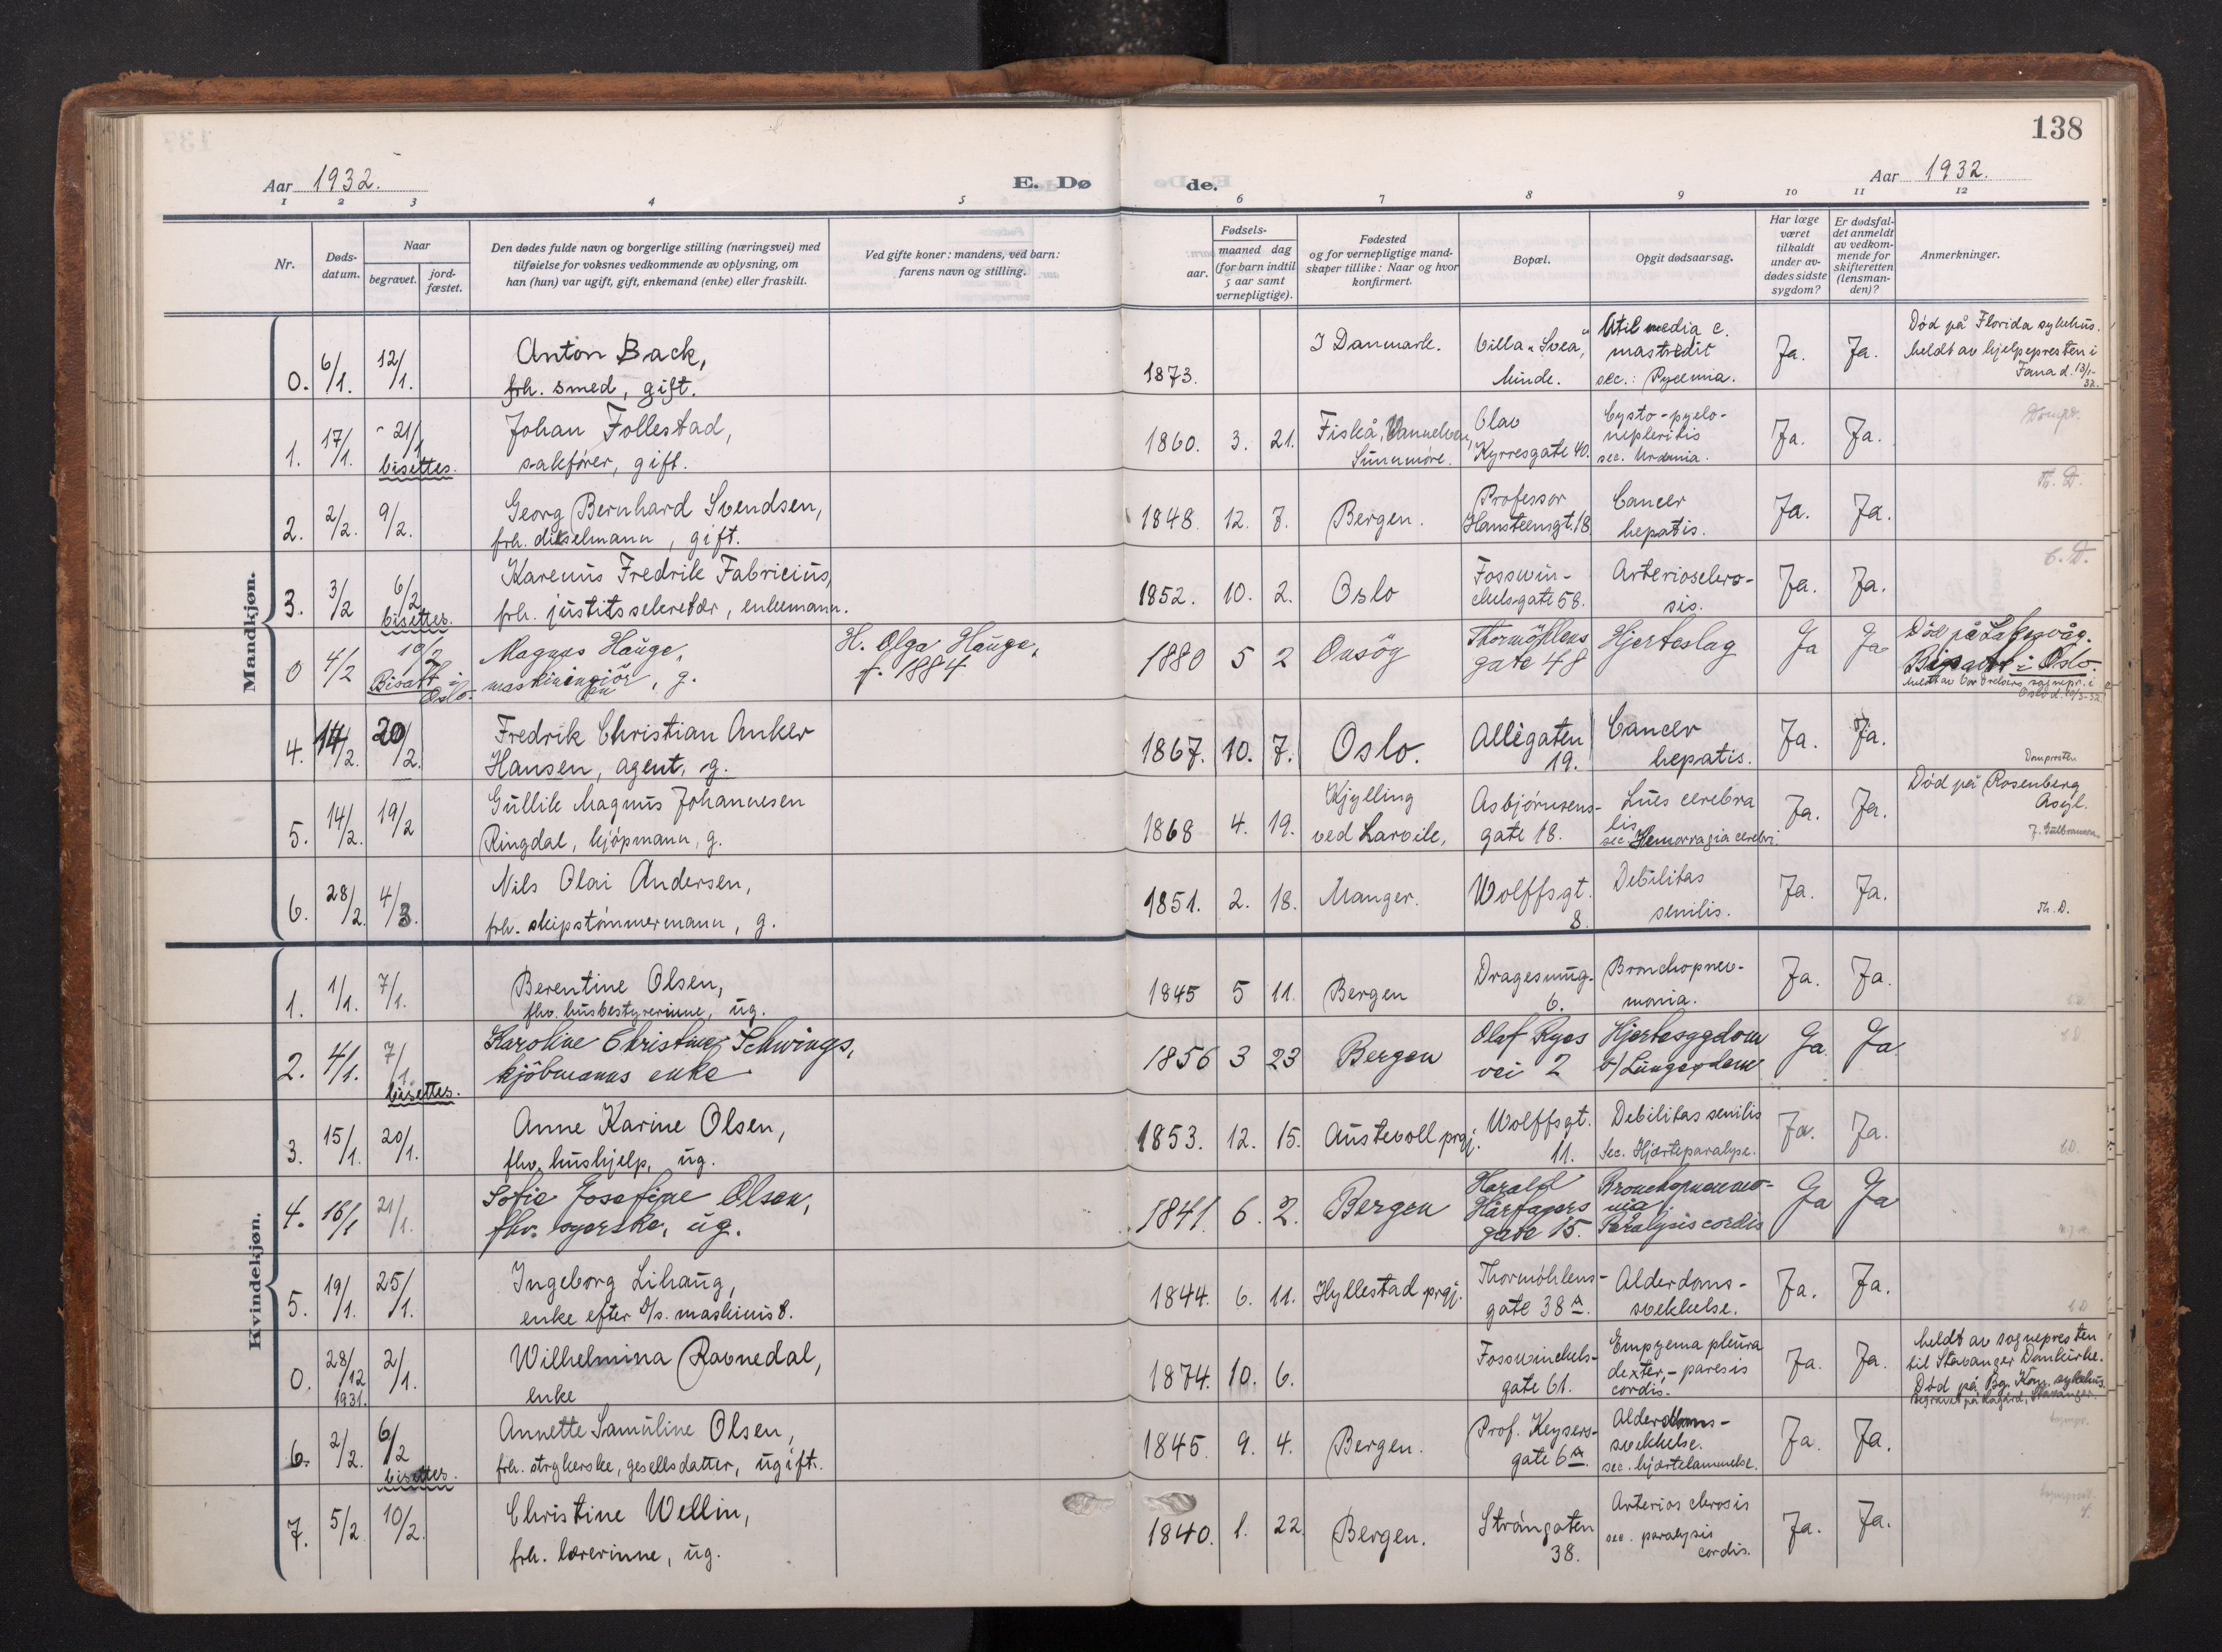 138
Aar 1932.
E. Dø
de.
Aar 1932.
1 2 3 4 5 6 7 8 9 10 11 12
Nr.
Døds-
datum.
Naar
begravet.
jord-
fæstet.
Den dødes fulde navn og borgerlige stilling (næringsvei) med
tilføielse for voksnes vedkommende av oplysning, om
han (hun) var ugift, gift, enkemand (enke) eller fraskilt.
Ved gifte koner: mandens, ved barn:
farens navn og stilling.
Fødsels-
aar.
maaned dag
(for barn indtil
5 aar samt
vernepligtige).
Fødested
og for vernepligtige mand-
skaper tillike: Naar og hvor
konfirmert.
Bopæl.
Opgit dødsaarsag.
Har læge
været
tilkaldt
under av-
dødes sidste
sygdom?
Er dødsfal-
det anmeldt
av vedkom-
mende for
skifteretten
(lensman-
den)?
Anmerkninger.
Mandkjøn.
0. 6/1. 12/1.
Anton Back,
frh. smed, gift.
1873.
I Danmark.
Villa "Svea",
Minde.
media c.
sec.: Pyemia.
Ja. Ja.
Død på Florida sykehus.
Meldt av hjelpepresten i
Fana d. 13/1-
32.
1. 17/1. 21/1
bisettes.
Johan Follestad,
sakfører, gift.
1860. 3. 21.
Fiskå, Vannelven,
Sunnmøre.
Olav
Kyrresgate 40.
Cysto-pyelo-
nephritis
sec. Urämia.
Ja. Ja.
Dompr.
2. 2/2. 9/2.
Georg Bernhard Svendsen,
frh. dikselmann, gift.
1848. 12. 7.
Bergen.
Professor
Hansteensgt. 18
Cancer
hepatis.
Ja. Ja.
Th. D.
3. 3/2 6/2
bisettes.
Karenus Fredrik Fabricius,
frh. justitssekretær, enkemann.
1852. 10. 2.
Oslo
Fosswin-
ckelsgate 58.
Arterioselero-
sis.
Ja. Ja.
C. D.
0 4/2 10/2
Bisatt i
Oslo.
Magnus Hauge,
maskiningiör, g.
en
H. Olga Hauge,
f. 1884
1880 5 2
Onsöy
Thormöhlens
gate 48
Hjerteslag
Ja Ja
Död på Laksevåg.
Bisatt i Oslo.
4. 14/2. 20/2.
Fredrik Christian Anker
Hansen, agent, g.
1867. 10. 7.
Oslo.
Allégaten
19.
Cancer
hepatis.
Ja. Ja.
Domprosten
5. 14/2. 19/2
Gullik Magnus Johannesen
Ringdal, kjøpmann, g.
1868 4. 19.
Kjylling
ved Larvik,
Asbjørnsens-
gate 18.
Lues cerebra
lis
sec. Hemorragia cerebri.
Ja. Ja.
Død på Rosenberg
Asyl.
J. Gulbransen
6. 28/2. 4/3.
Nils Olai Andersen,
frh. skipstømmermann, g.
1851. 2. 18.
Manger.
Wolffsgt.
8.
Debilitas
senilis.
Ja. Ja.
Th. D.
Kvindekjøn.
1. 1/1. 7/1.
Berentine Olsen,
fhv. husbestyrerinne, ug.
1845 5 11.
Bergen
Dragesmug.
6.
Bronchopnev-
monia.
Ja. Ja.
2. 4/1. 7/1
bisettes.
Karoline Christine Schwings,
kjöbmanns enke
1856 3 23
Bergen
Olaf Ryes
vei 2
Hjertesygdom
Ja. Ja.
3. 15/1. 20/1.
Anne Karine Olsen,
fhv. hushjelp, ug.
1853. 12. 15.
Austevoll prgj.
Wolffsgt.
11.
Debilitas senilis
Sec. Hjerteparalyse.
Ja. Ja.
4. 16/1 21/1.
Sofie Josefine Olsen,
fhv. syerske, ug.
1841. 6. 2.
Bergen
Harald
Hårfagers
gate 15.
Bronchopneumo-
nia
Paralysis cordis
Ja Ja
5. 19/1. 25/1.
Ingeborg Lihaug,
enke efter d/s. maskinist.
1844. 6. 11.
Hyllestad prgj.
Thormöhlens-
gate 38 a.
Alderdoms-
svekkelse.
Ja. Ja.
0. 28/12 2/1.
1931.
Wilhelmina Ravnedal,
enke
1874. 10. 6.
Fosswinckels-
gate 61.
Empyema pleura
dexter, - paresis
cordis.
Ja. Ja.
Meldt av sognepresten
til Stavanger Domkirke.
Død på Bg. Kom. sykehus.
6. 2/2. 6/2
bisettes.
Annette Samuline Olsen,
frh. strykerske, gesellsdatter, ugift.
1845. 9. 4.
Bergen.
Prof. Keysers-
gate 6 a.
Alderdoms-
svekkelse.
sec. hjertelammelse.
Ja. Ja.
7. 5/2. 10/2.
Christine Wellin,
frh. lærerinne, ug.
1840. 1. 22.
Bergen.
Strangaten
38.
Arterios clerosis
sec. paralysis
cordis.
Ja. Ja.